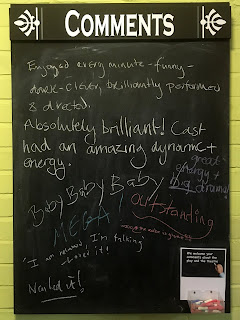 COMMENTS
Enjoyed every minute - funny -
dark - clever, brilliantly performed
& directed.
Absolutely brilliant! Cast
had an amazing dynamic +
energy.
great
energy +
big drama!
Baby Baby Baby
MEGA!
OUTSTANDING
"I am relaxed, I'm talking"
- Loved it!
Nailed it!
We welcome your
comments about the
play and the theatre